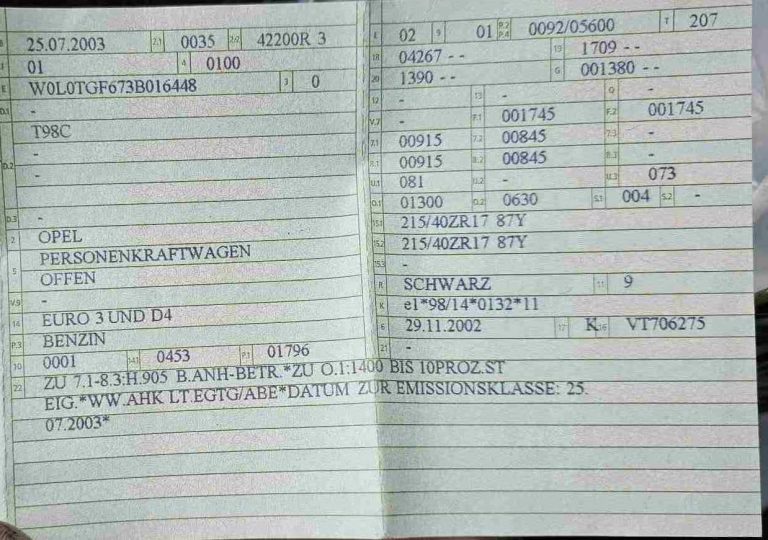 B 25.07.2003 2.1 0035 2.2 42200R 3
J 01 4 0100
E W0L0TGF673B016448 3 0
D.1 -
T98C
-
D.2 -
-
D.3 -
2 OPEL
PERSONENKRAFTWAGEN
5 OFFEN
V.9 -
14 EURO 3 UND D4
P.3 BENZIN
10 0001 14.1 0453 P.1 01796
22 ZU 7.1-8.3:H.905 B.ANH-BETR.*ZU O.1:1400 BIS 10PROZ.ST
EIG.*WW.AHK LT.EGTG/ABE*DATUM ZUR EMISSIONSKLASSE: 25.
07.2003*
L 02 9 01 P.2 P.4 0092/05600 T 207
18 04267 - - 19 1709 - -
20 1390 - - G 001380 - -
12 - 13 - Q -
V.7 - F.1 001745 F.2 001745
7.1 00915 7.2 00845 7.3 -
8.1 00915 8.2 00845 8.3 -
U.1 081 U.2 - U.3 073
O.1 01300 O.2 0630 S.1 004 S.2 -
15.1 215/40ZR17 87Y
15.2 215/40ZR17 87Y
15.3 -
R SCHWARZ 11 9
K e1*98/14*0132*11
6 29.11.2002 17 K 16 VT706275
21 -